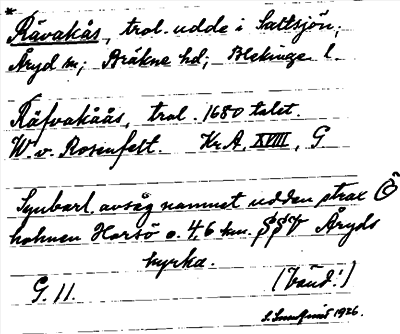 * Rävakås, trol. udde i Saltsjön;
Åryd sn; Bräkne hd; Blekinge l.
Räfvakåås, trol. 1680 talet.
W. v. Rosenfelt. Kr. A. XVIII, G
Synbarl. avsåg namnet udden strax Ö
holmen Harsö o. 4,6 km. SSV Åryds
kyrka.
G. 11. (Vänd!)
1926.